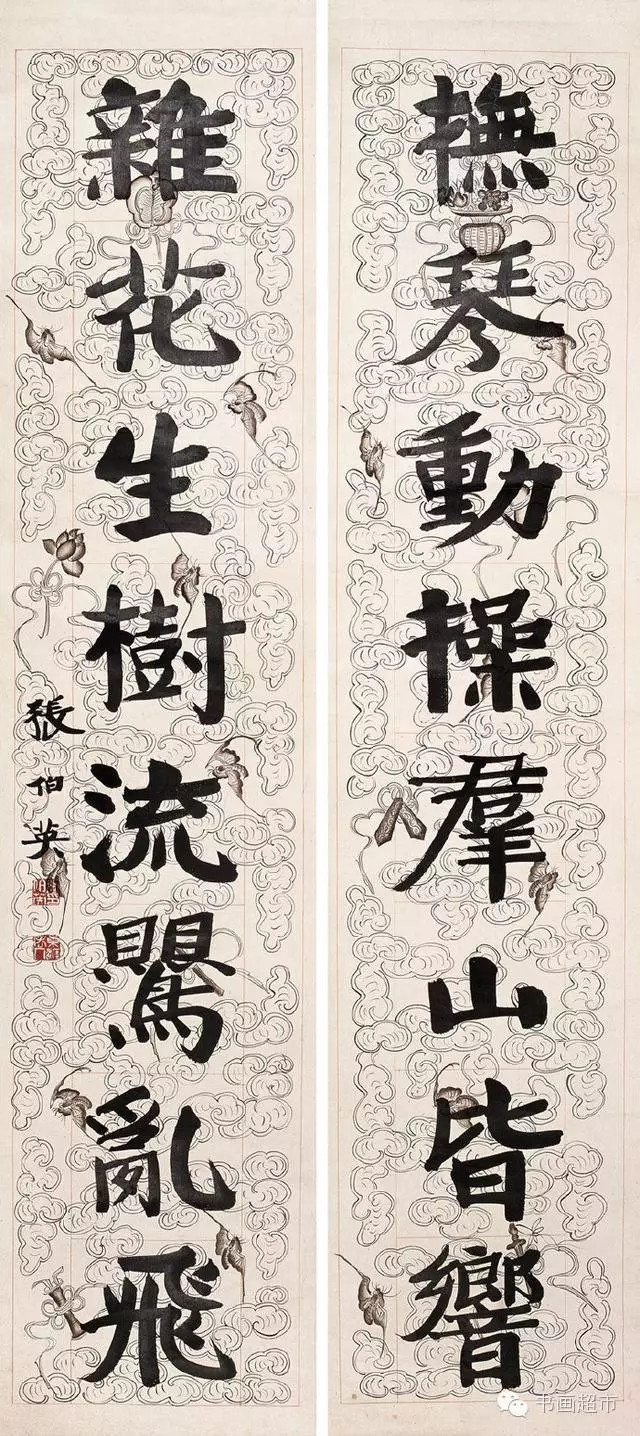 撫琴動操羣山皆響
雜花生樹流鶯亂飛
張伯英
书画超市